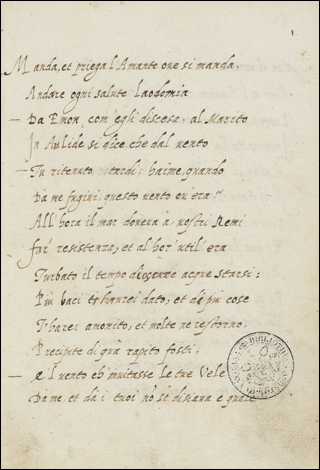 Manda, et priega l'Amante oue si manda,
Andare ogni salute Laodomia
Da Emon, com'egli discesa, al Marito
In Aulide si dice, che dal uento
Tu ritenuto, etardi; haime, quando
Da me fugiui, questo uento ou'era?
All'hora il mar doueua a' uostri Remi
far resistenza, et al hor' util' era
Turbato il tempo acque starsi:
Più baci to haurei dato, et de più cose
T'harei amonito, et molte ne restorno,
Precipite di quà rapito fosti,
El uento ch' inuitasse le tue Vele
Da me, et da i tuoi nõ se disiaua e